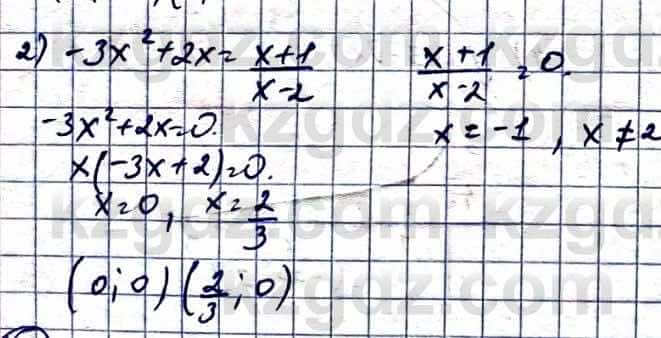 2) -3x² + 2x = (x+1)/(x-2)    (x+1)/(x-2) = 0.
-3x² + 2x = 0.    x = -1, x ≠ 2
x(-3x + 2) = 0.
x = 0, x = 2/3
(0; 0) (2/3; 0)